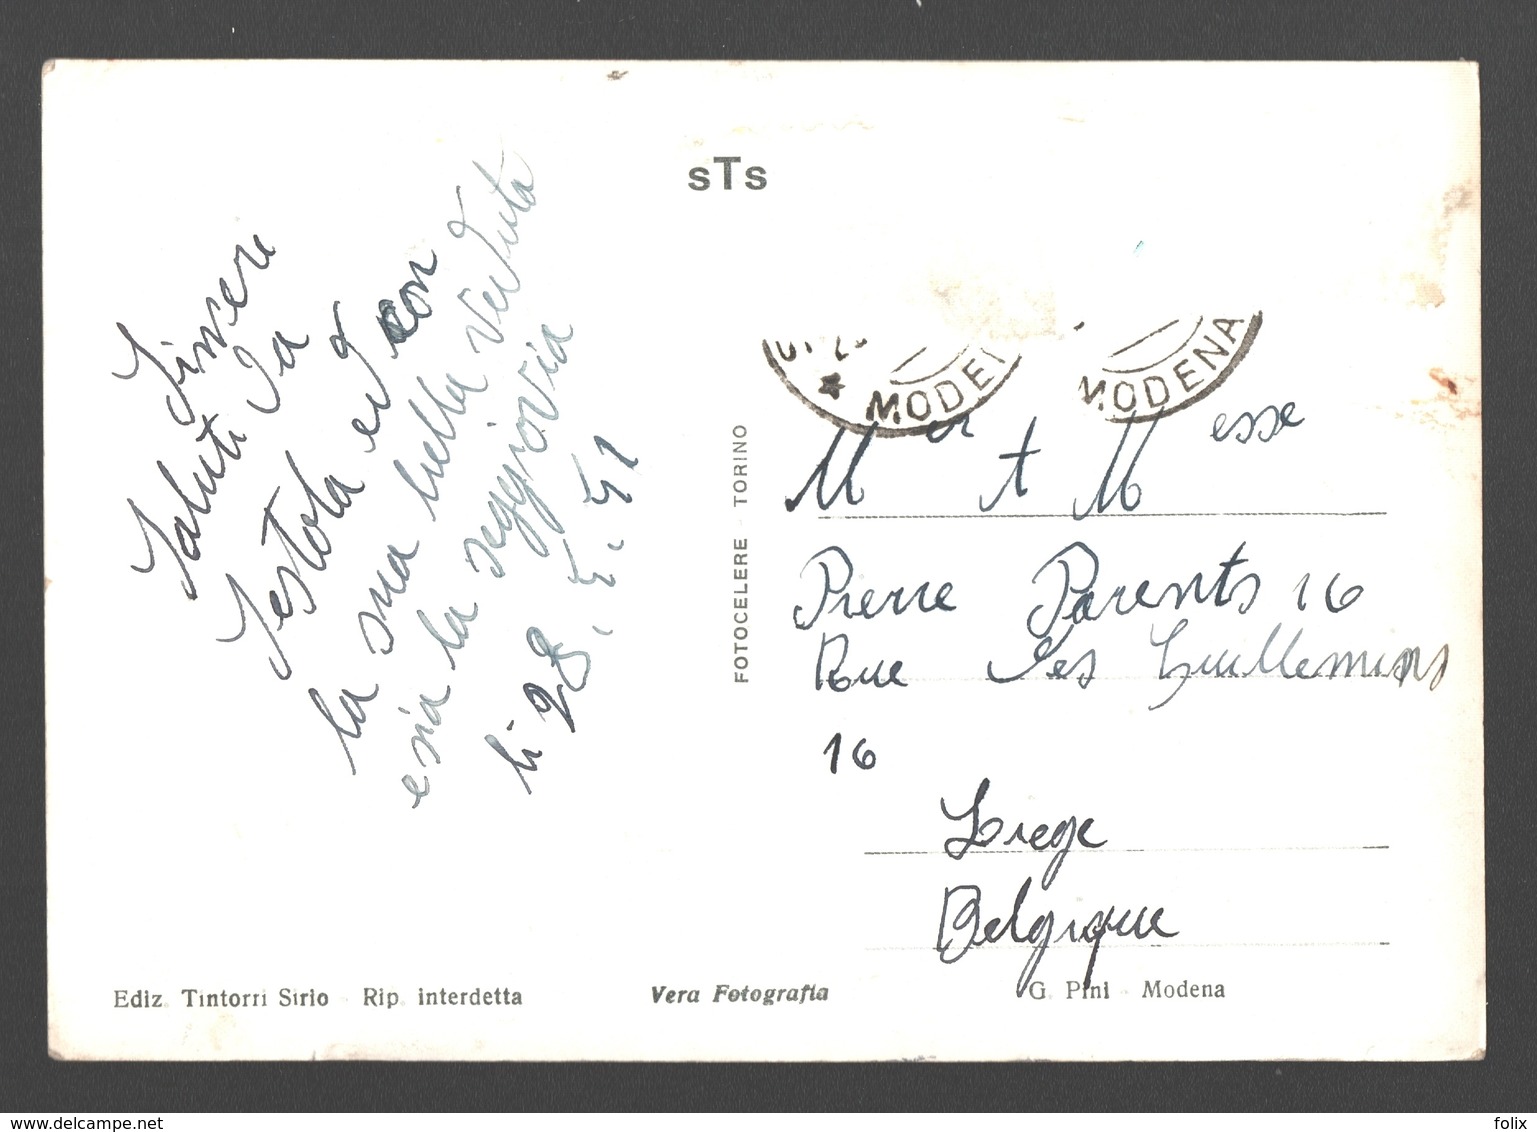 sTs
Sinceri
Saluti da
Sestola ed con
la sua bella veduta
e sia la seggiovia
li 28.
MODEN
MODENA
FOTOCELERE - TORINO
Mer t Messe
Pierre Parents 16
Rue des Guillemins
16
Liege
Belgique
Ediz. Tintorri Sirio - Rip. interdetta
Vera Fotografia
G. Pini - Modena
delcampe.net
folix